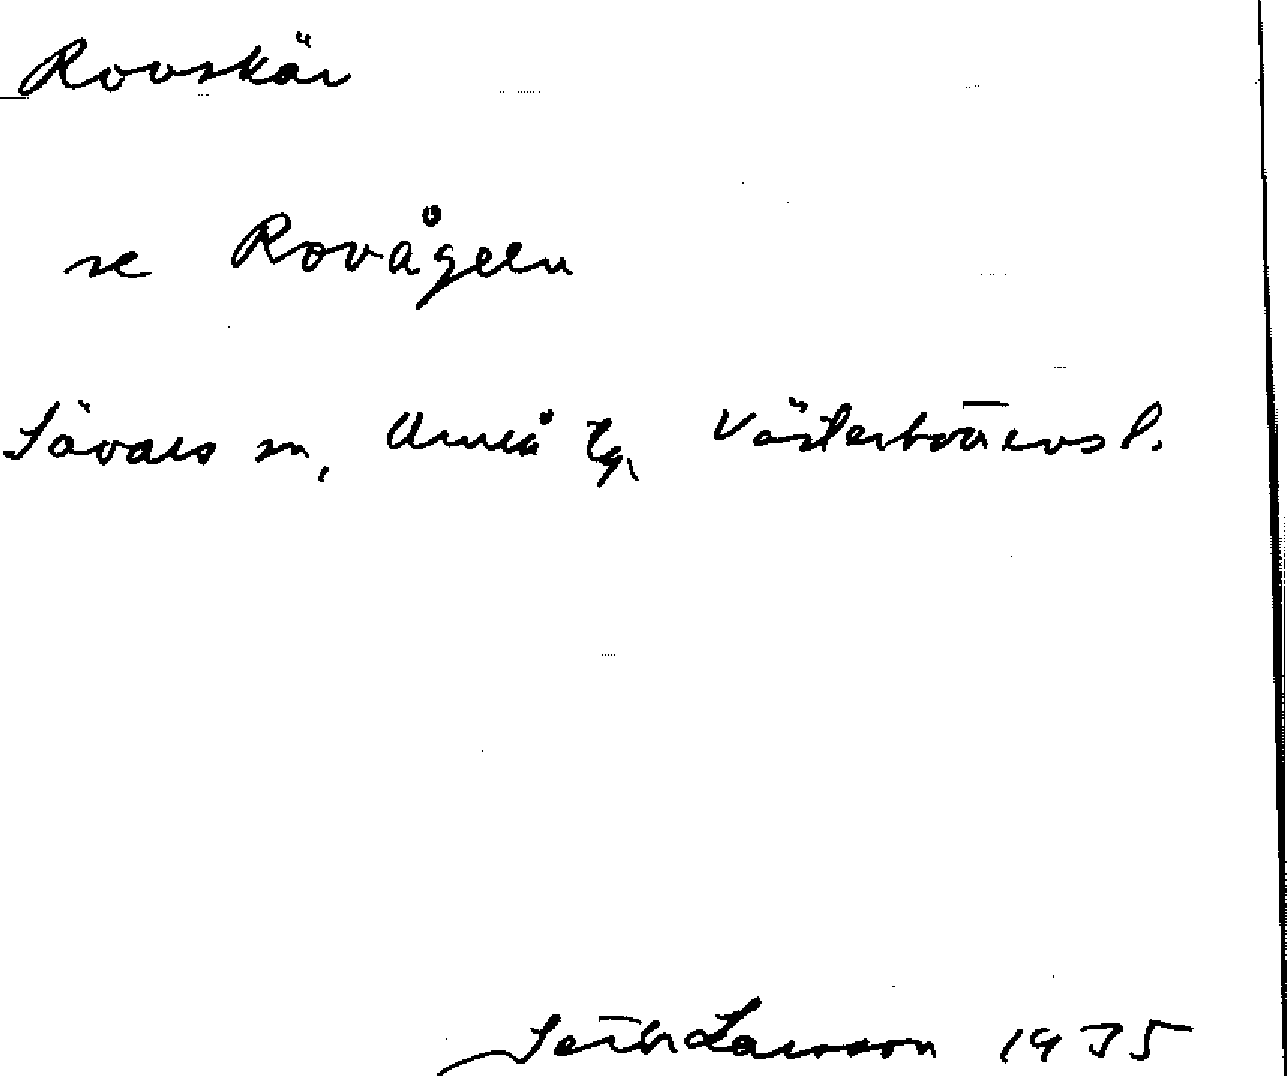 Rovskär
se Rovågeln
Sävars sn, Umeå tg, Västerbottens l.
Larsson 1975